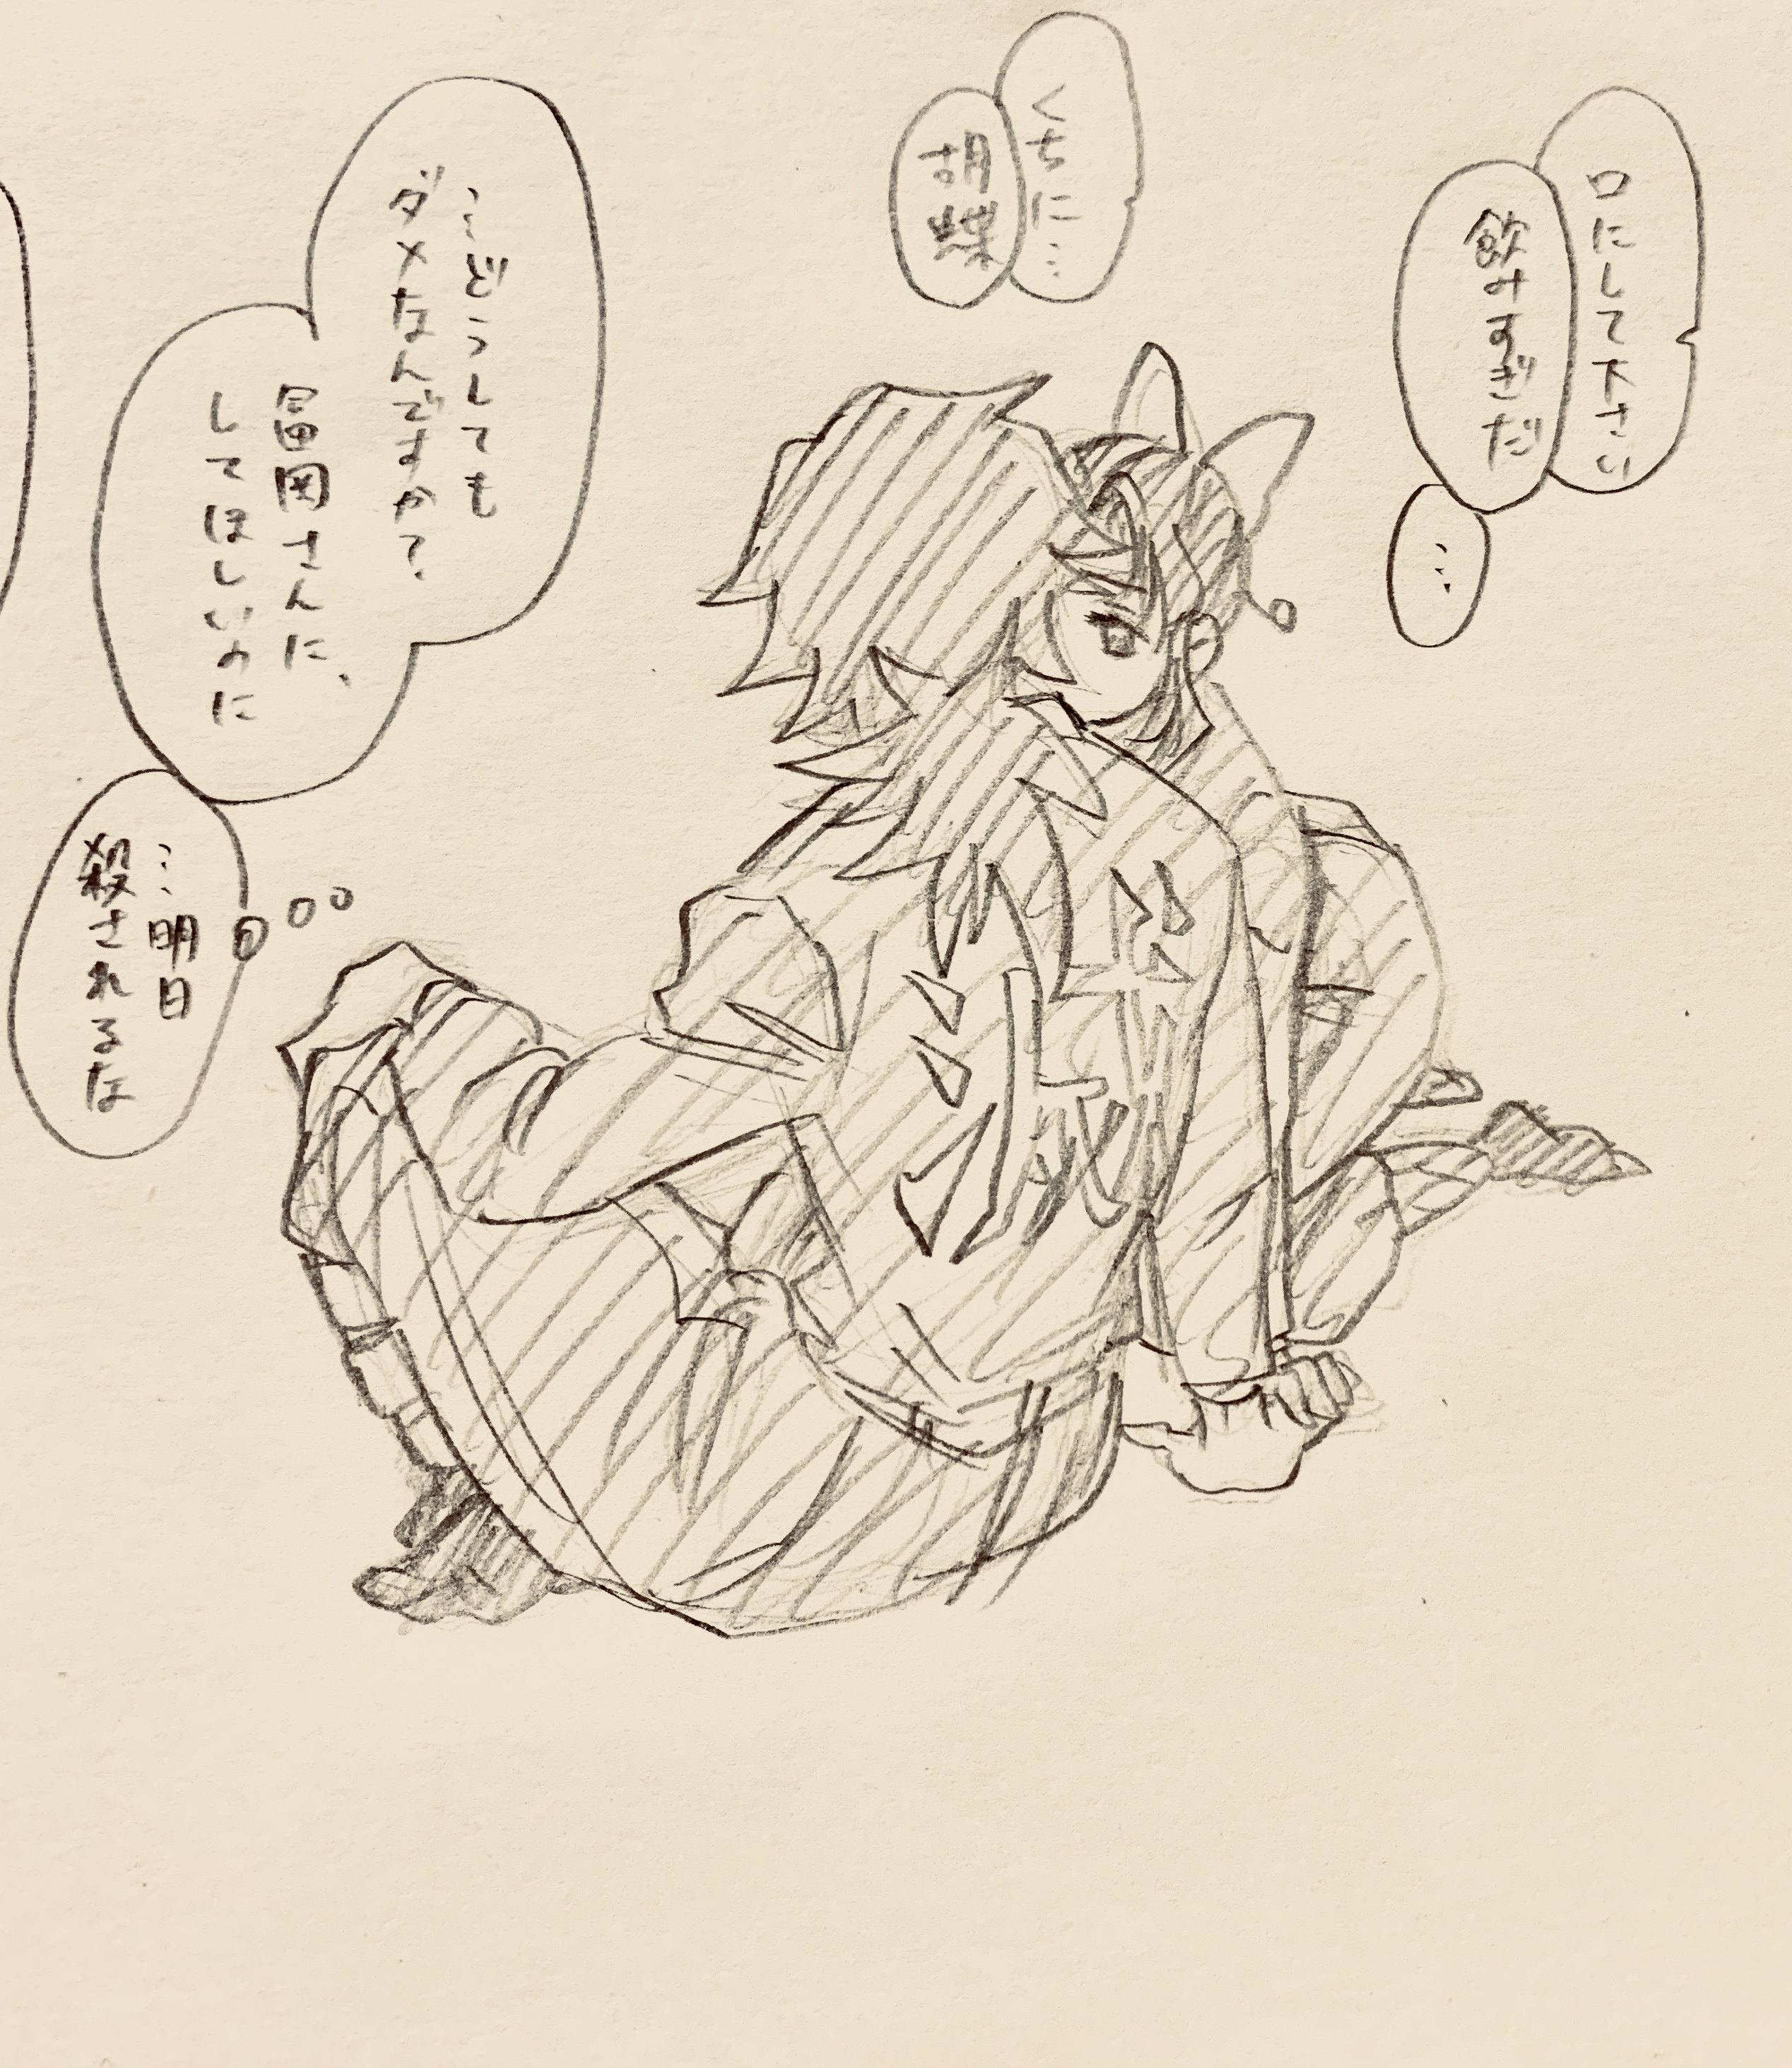 口にして下さい
飲みすぎだ
…
くちに…
胡蝶
…どうしても
ダメなんですか?
冨岡さんに、
してほしいのに
…明日
殺されるな